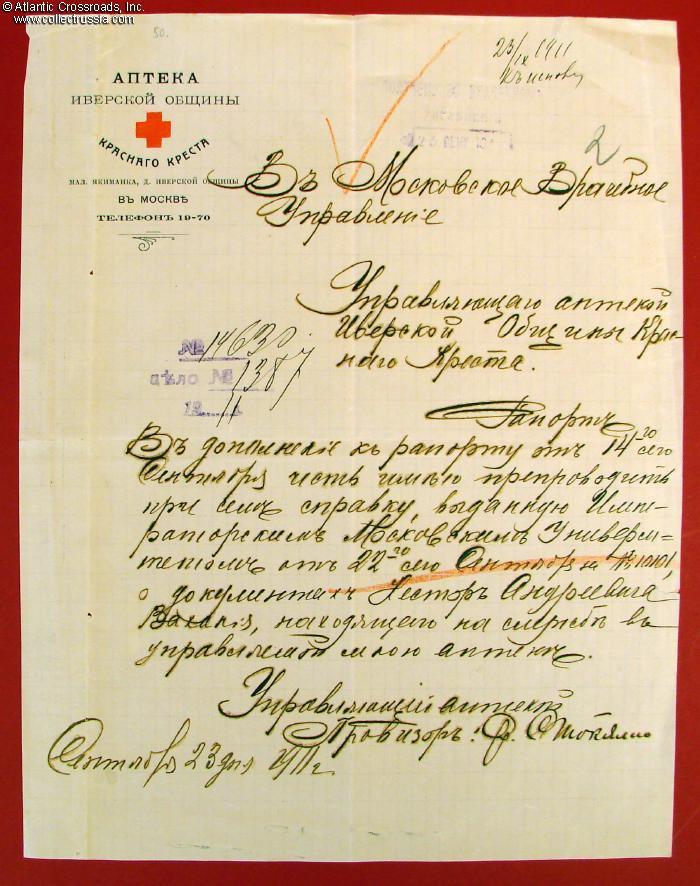 © Atlantic Crossroads, Inc.
www.collectrussia.com
50.
23/IX 1911
АПТЕКА
ИВЕРСКОЙ ОБЩИНЫ
КРАСНАГО КРЕСТА
МАЛ. ЯКИМАНКА, Д. ИВЕРСКОЙ ОБЩИНЫ
ВЪ МОСКВѢ
ТЕЛЕФОНЪ 19-70
2
Въ Московское Врачебное
Управленіе
Управляющаго аптекой
Иверской Общины Крас-
наго Креста.
№ 14630
дѣло № 1387
1911
Рапортъ
Въ дополненіе къ рапорту отъ 14го сего
Сентября честь имѣю препроводить
при семъ справку, выданную Импе-
раторскимъ Московскимъ Универси-
тетомъ отъ 22го сего Сентября за №
о документахъ Несторъ Андреевича
находящего на службѣ въ
управляемой мною аптекѣ.
Управляющій аптекой
Провизоръ:
Сентября 23 дня 1911 г.